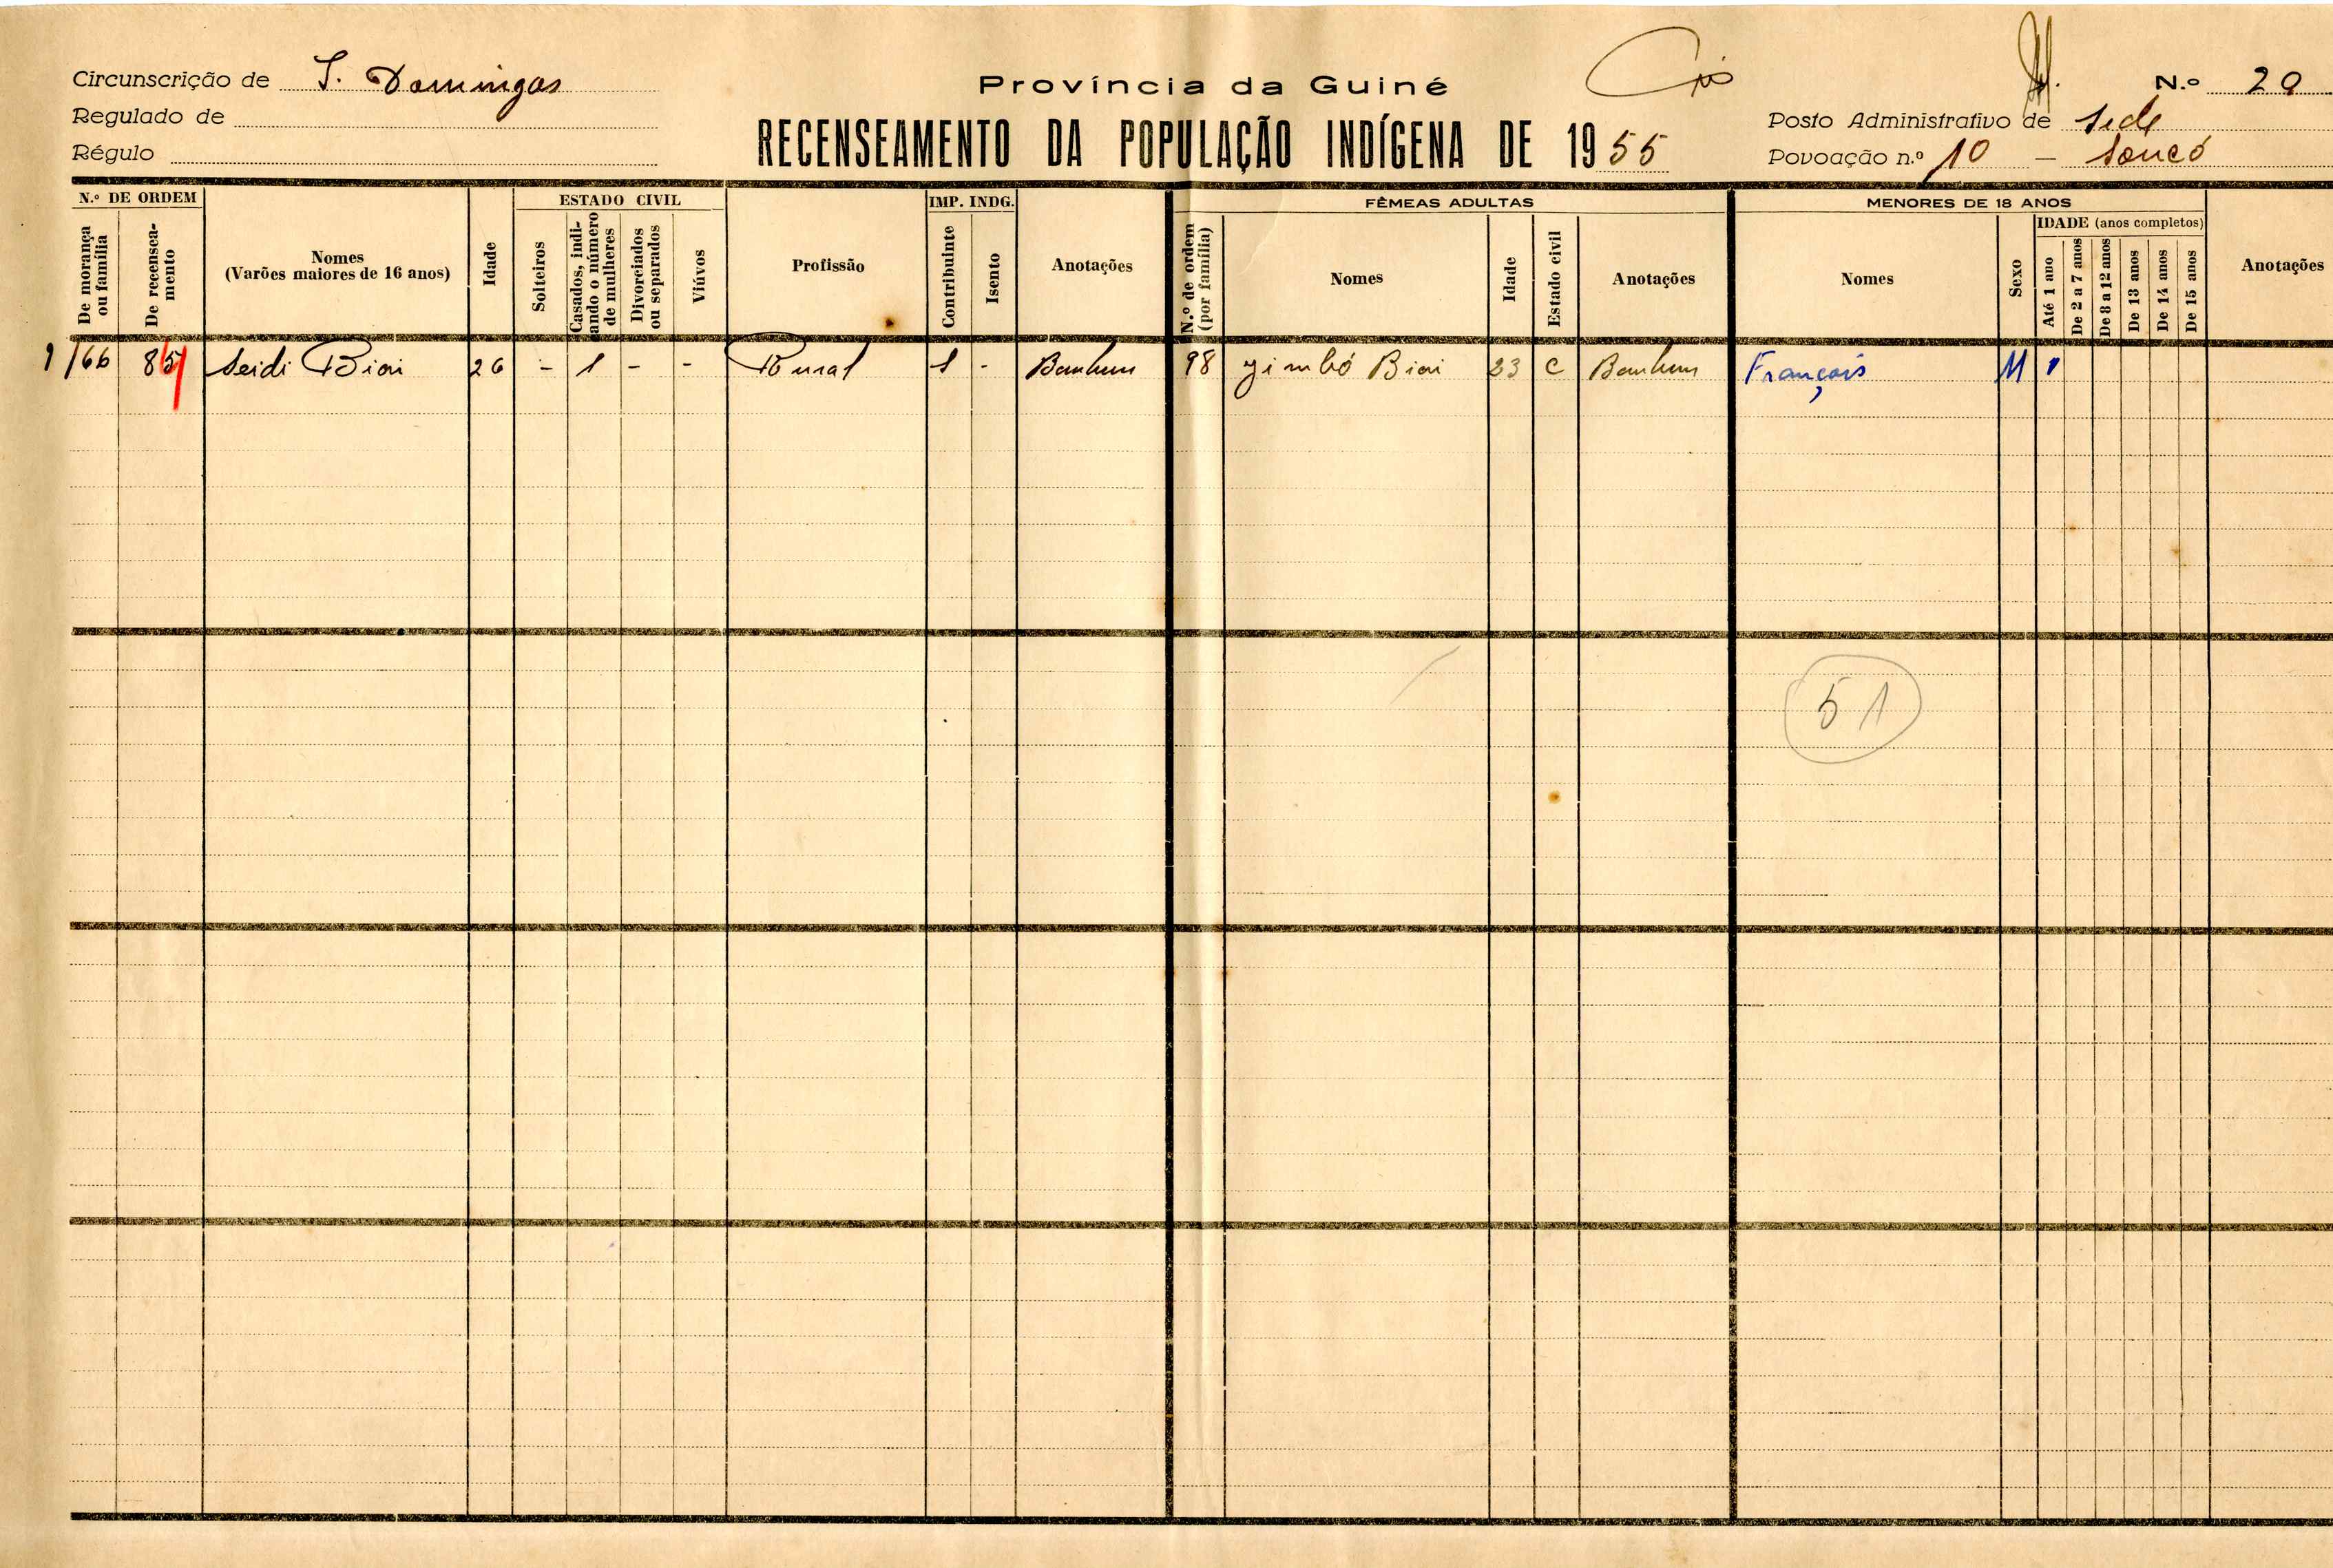 Circunscrição de S. Domingos
Regulado de
Régulo
Província da Guiné
RECENSEAMENTO DA POPULAÇÃO INDÍGENA DE 1955
N.º 29
Posto Administrativo de Sede
Povoação n.º 10 –
N.º DE ORDEM
De morança ou família
De recenseamento
Nomes
(Varões maiores de 16 anos)
Idade
ESTADO CIVIL
Solteiros
Casados, indicando o número de mulheres
Divorciados ou separados
Viúvos
Profissão
IMP. INDG.
Contribuinte
Isento
Anotações
FÊMEAS ADULTAS
N.º de ordem (por família)
Nomes
Idade
Estado civil
Anotações
MENORES DE 18 ANOS
Nomes
Sexo
IDADE (anos completos)
Até 1 ano
De 2 a 7 anos
De 8 a 12 anos
De 13 anos
De 14 anos
De 15 anos
Anotações
1/66 85 Seidi Biai 26 - 1 - - Rural 1 - Banhum 98 Jimbó Biai 23 C Banhum François M 1
51